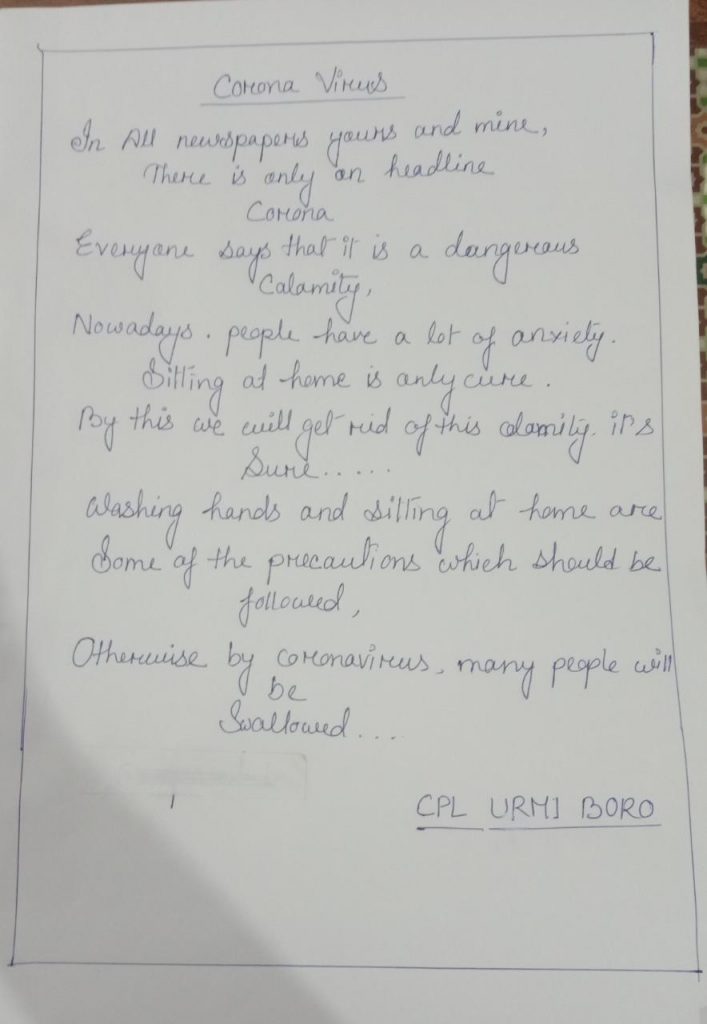 Corona Virus
In All newspapers yours and mine,
There is only an headline
Corona
Everyone says that it is a dangerous
Calamity,
Nowadays. people have a lot of anxiety.
Sitting at home is only cure.
By this we will get rid of this calamity. it's
Sure.....
Washing hands and sitting at home are
Some of the precautions which should be
followed,
Otherwise by coronavirus, many people will
be
Swallowed...
CPL URMI BORO